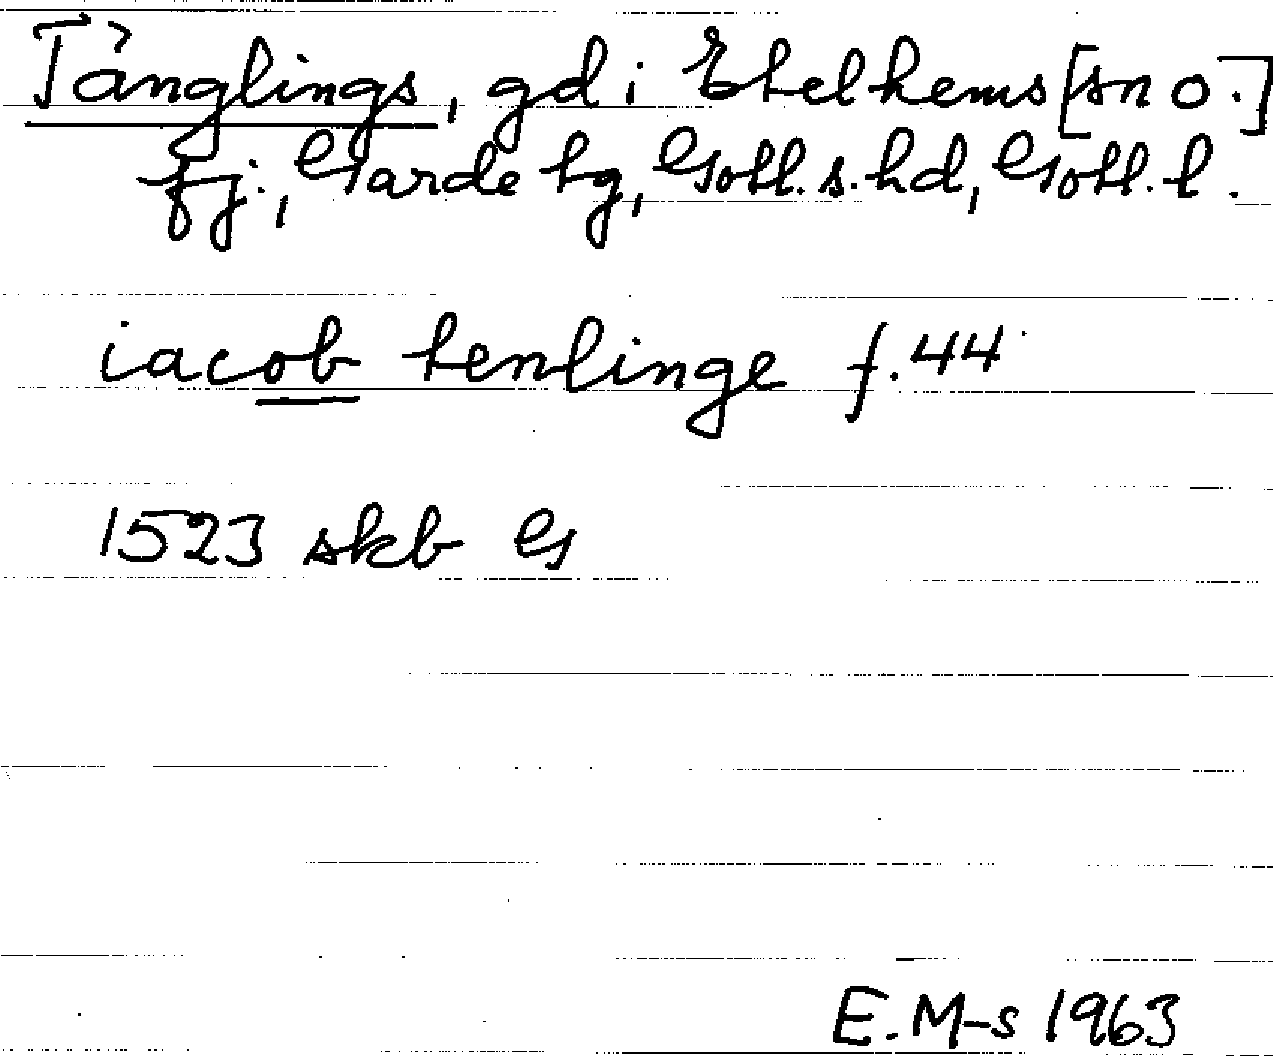 Tänglings, gd i Etelhems [sn o.]
fj., Garde tg, Gotl. s. hd, Gotl. l.
iacob tenlinge f. 44
1523 skb G
E. M-s 1963